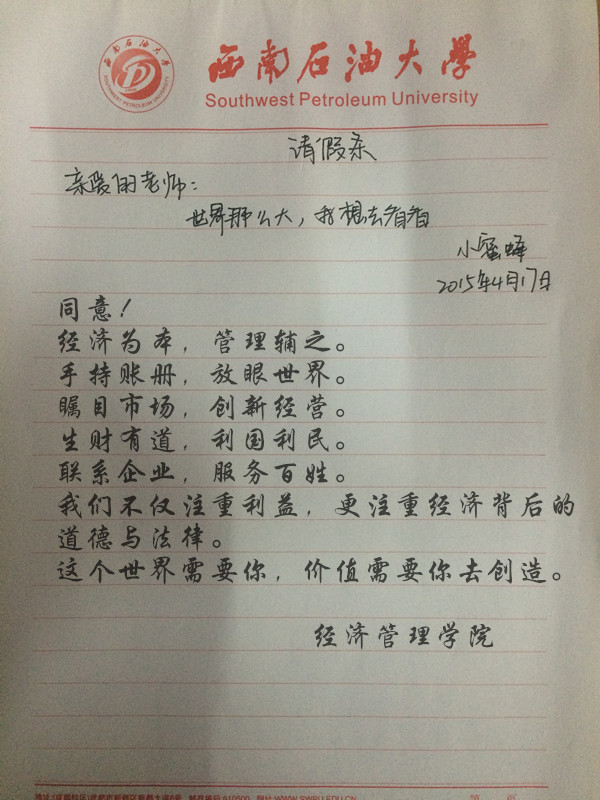 西南石油大學
Southwest Petroleum University
请假条
亲爱的老师：
世界那么大，我想去看看
小蜜蜂
2015年4月17日
同意！
经济为本，管理辅之。
手持账册，放眼世界。
瞩目市场，创新经营。
生财有道，利国利民。
联系企业，服务百姓。
我们不仅注重利益，更注重经济背后的
道德与法律。
这个世界需要你，价值需要你去创造。
经济管理学院